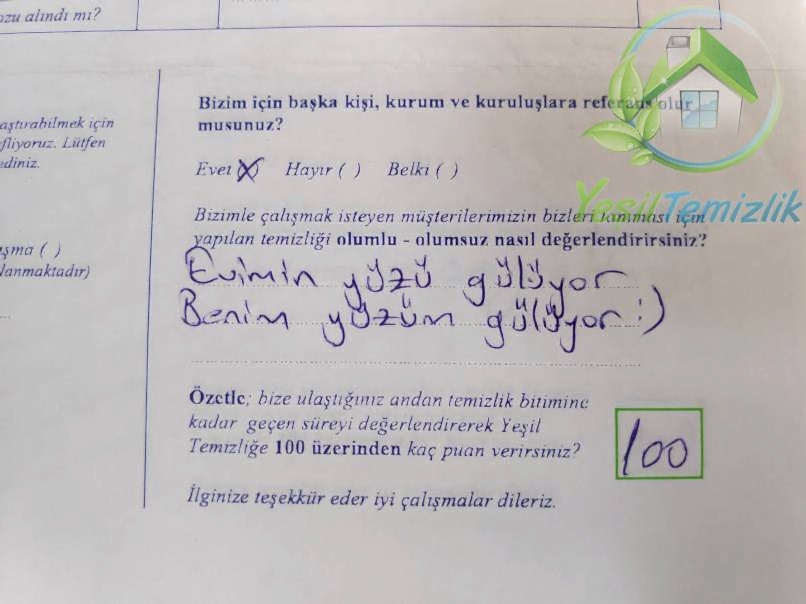 ozu alındı mı?
aştırabilmek için
fliyoruz. Lütfen
ediniz.
şma ( )
lanmaktadır)
Bizim için başka kişi, kurum ve kuruluşlara referans olur
musunuz?
Evet (X) Hayır ( ) Belki ( )
YeşilTemizlik
Bizimle çalışmak isteyen müşterilerimizin bizleri tanıması için
yapılan temizliği olumlu - olumsuz nasıl değerlendirirsiniz?
Evimin yüzü gülüyor
Benim yüzüm gülüyor :)
Özetle; bize ulaştığınız andan temizlik bitimine
kadar geçen süreyi değerlendirerek Yeşil
Temizliğe 100 üzerinden kaç puan verirsiniz?
100
İlginize teşekkür eder iyi çalışmalar dileriz.